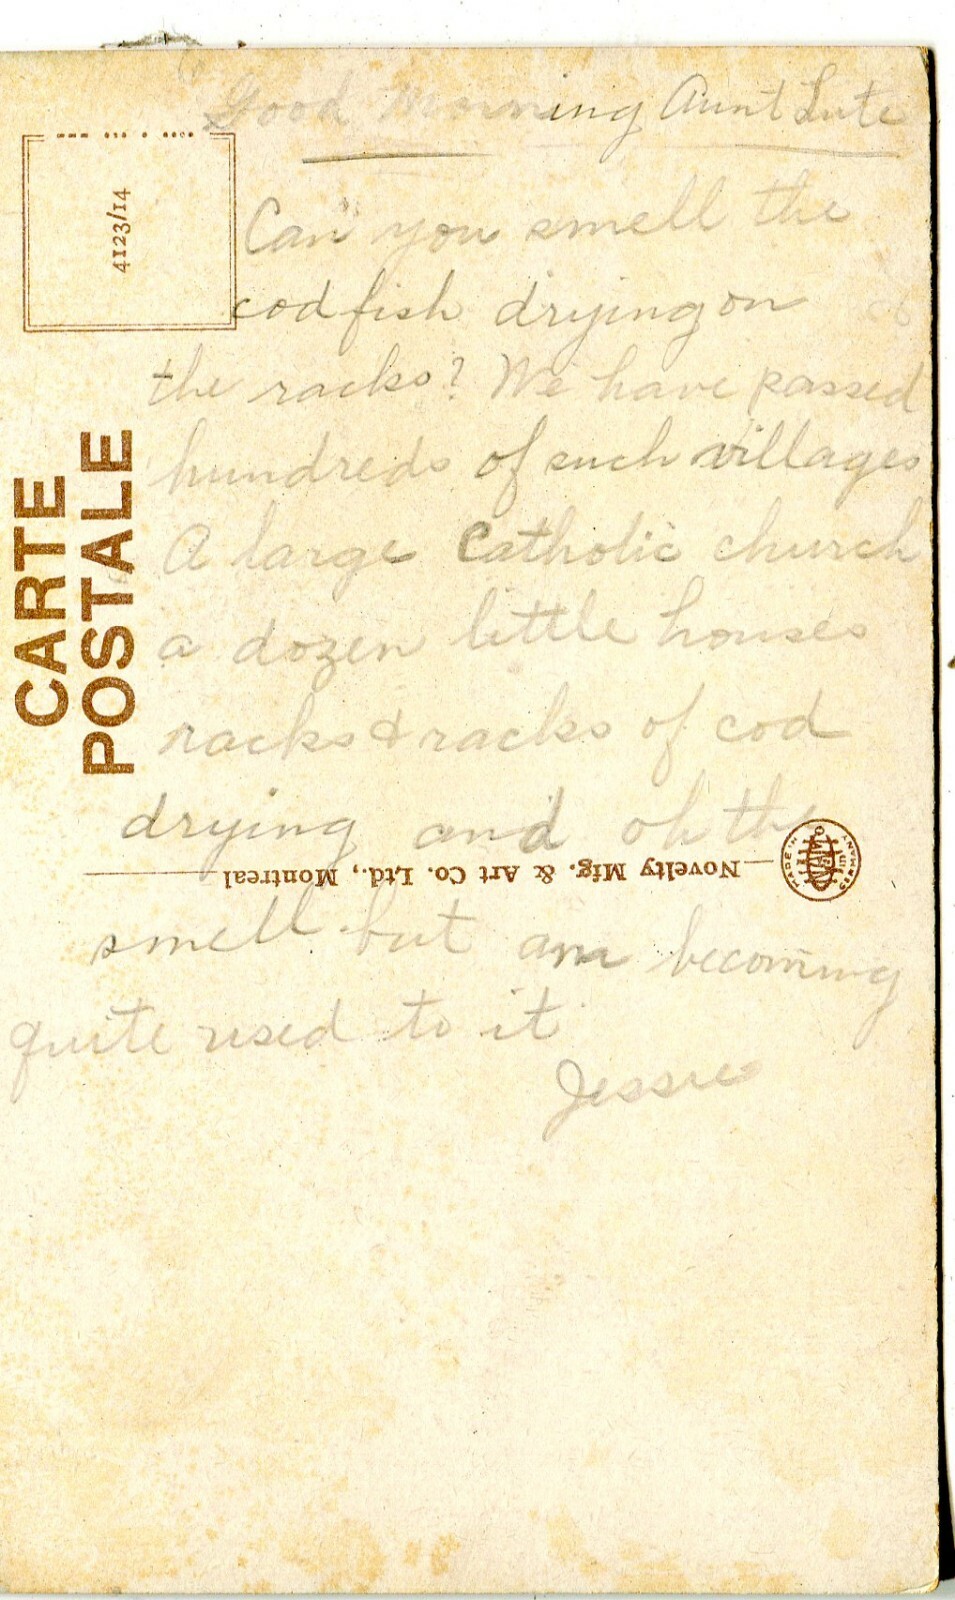 Good Morning Aunt Lute
Can you smell the
codfish drying on
the racks? We have passed
hundreds of such villages
A large Catholic church
a dozen little houses
racks & racks of cod
drying and oh the
smell but am becoming
quite used to it
Jessie
4123/14
CARTE
POSTALE
Novelty Mfg. & Art Co. Ltd., Montreal
MADE IN GERMANY